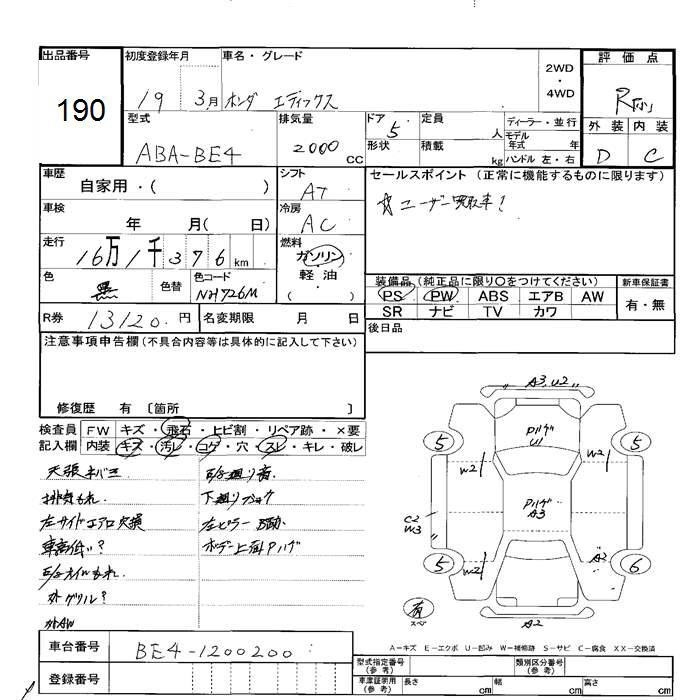 出品番号 初度登録年月 車名・グレード 評価点
190 19 3月 ホンダ エディックス 2WD・4WD R
型式 排気量 ドア 定員 ディーラー・並行 外装 内装
ABA-BE4 2000cc 5 人 モデル年式 年 D C
形状 積載 kg ハンドル 左・右
車歴 シフト セールスポイント(正常に機能するものに限ります)
自家用・( ) AT ☆ユーザー買取車!
車検 冷房
年 月( 日) AC
走行 燃料
16万1千376km ガソリン
色 色替 色コード 軽油
黒 NH726M ( )
装備品(純正品に限り○をつけてください) 新車保証書
PS PW ABS エアB AW 有・無
SR ナビ TV カワ
R券 13120円 名変期限 月 日 後日品
注意事項申告欄(不具合内容等は具体的に記入して下さい)
修復歴 有〔箇所 〕
検査員 FW キズ・飛石・ヒビ割・リペア跡・×要
記入欄 内装 キズ・汚レ・コゲ・穴・スレ・キレ・破レ
排気もれ 下廻りサビ
左サイドエアロ欠損 左ピラー
車高低い? ボデー上面Pハゲ
外グリル?
外AW
A3,U2
Pハゲ
U1
5 5
W2 W2
Pハゲ
A3
C2
W3
5 W2 A2 6
有
スペ
A2
A−キズ E−エクボ U−凹み W−補修跡 S−サビ C−腐食 XX−交換済
車台番号 BE4-1200200
型式指定番号(参考) 類別区分番号(参考)
登録番号
車庫証明用(参考) 長さ cm 幅 cm 高さ cm